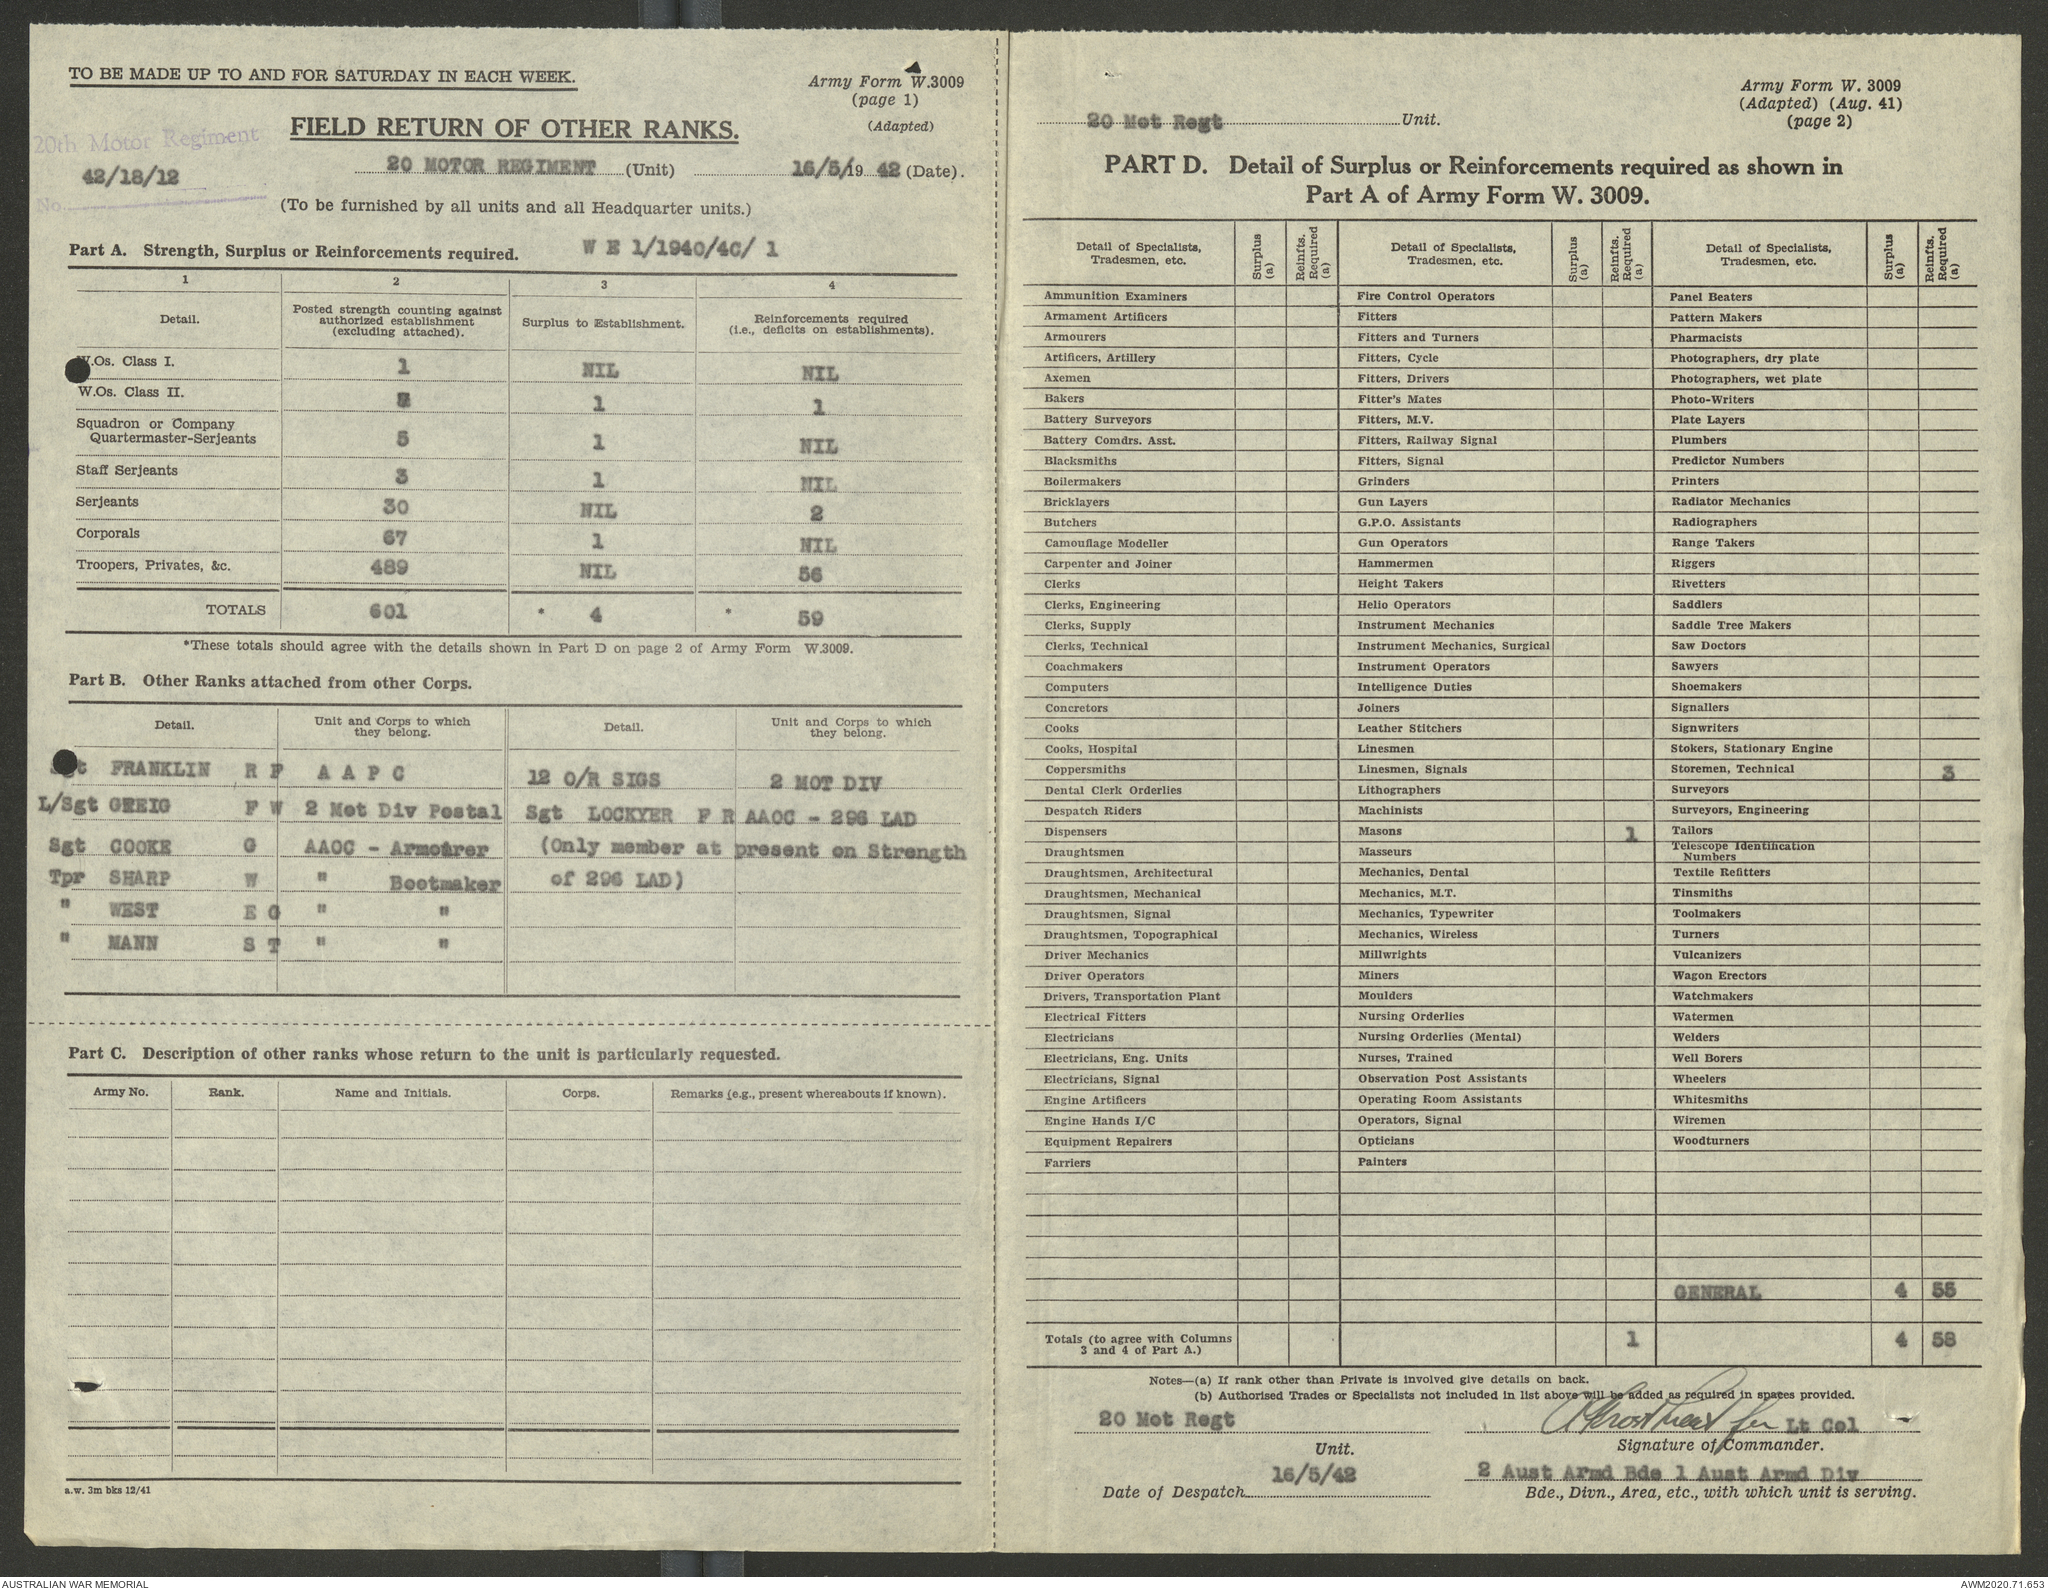 TO BE MADE UP TO AND FOR SATURDAY IN EACH WEEK.
Army Form W.3009
(page 1)
(Adapted)
FIELD RETURN OF OTHER RANKS.
20th Motor Regiment
42/18/12
No.
20 MOTOR REGIMENT (Unit) 16/5/19 42 (Date).
(To be furnished by all units and all Headquarter units.)
Part A. Strength, Surplus or Reinforcements required. W E 1/1940/4C/ 1
1 2 3 4
Detail. Posted strength counting against authorized establishment (excluding attached). Surplus to Establishment. Reinforcements required (i.e., deficits on establishments).
W.Os. Class I. 1 NIL NIL
W.Os. Class II. 1 1
Squadron or Company
Quartermaster-Serjeants 5 1 NIL
Staff Serjeants 3 1 NIL
Serjeants 30 NIL 2
Corporals 67 1 NIL
Troopers, Privates, &c. 489 NIL 56
TOTALS 601 * 4 * 59
*These totals should agree with the details shown in Part D on page 2 of Army Form W.3009.
Part B. Other Ranks attached from other Corps.
Detail. Unit and Corps to which they belong. Detail. Unit and Corps to which they belong.
Sgt FRANKLIN R F A A P C 12 O/R SIGS 2 MOT DIV
L/Sgt GREIG F W 2 Mot Div Postal Sgt LOCKYER F R AAOC - 296 LAD
Sgt COOKE G AAOC - Armourer (Only member at present on Strength
Tpr SHARP W " Bootmaker of 296 LAD)
" WEST E G " "
" MANN S T " "
Part C. Description of other ranks whose return to the unit is particularly requested.
Army No. Rank. Name and Initials. Corps. Remarks (e.g., present whereabouts if known).
a.w. 3m bks 12/41
Army Form W. 3009
(Adapted) (Aug. 41)
(page 2)
20 Mot Regt Unit.
PART D. Detail of Surplus or Reinforcements required as shown in
Part A of Army Form W. 3009.
Detail of Specialists, Tradesmen, etc. Surplus (a) Reinfts. Required (a) Detail of Specialists, Tradesmen, etc. Surplus (a) Reinfts. Required (a) Detail of Specialists, Tradesmen, etc. Surplus (a) Reinfts. Required (a)
Ammunition Examiners Fire Control Operators Panel Beaters
Armament Artificers Fitters Pattern Makers
Armourers Fitters and Turners Pharmacists
Artificers, Artillery Fitters, Cycle Photographers, dry plate
Axemen Fitters, Drivers Photographers, wet plate
Bakers Fitter's Mates Photo-Writers
Battery Surveyors Fitters, M.V. Plate Layers
Battery Comdrs. Asst. Fitters, Railway Signal Plumbers
Blacksmiths Fitters, Signal Predictor Numbers
Boilermakers Grinders Printers
Bricklayers Gun Layers Radiator Mechanics
Butchers G.P.O. Assistants Radiographers
Camouflage Modeller Gun Operators Range Takers
Carpenter and Joiner Hammermen Riggers
Clerks Height Takers Rivetters
Clerks, Engineering Helio Operators Saddlers
Clerks, Supply Instrument Mechanics Saddle Tree Makers
Clerks, Technical Instrument Mechanics, Surgical Saw Doctors
Coachmakers Instrument Operators Sawyers
Computers Intelligence Duties Shoemakers
Concretors Joiners Signallers
Cooks Leather Stitchers Signwriters
Cooks, Hospital Linesmen Stokers, Stationary Engine
Coppersmiths Linesmen, Signals Storemen, Technical 3
Dental Clerk Orderlies Lithographers Surveyors
Despatch Riders Machinists Surveyors, Engineering
Dispensers Masons 1 Tailors
Draughtsmen Masseurs Telescope Identification Numbers
Draughtsmen, Architectural Mechanics, Dental Textile Refitters
Draughtsmen, Mechanical Mechanics, M.T. Tinsmiths
Draughtsmen, Signal Mechanics, Typewriter Toolmakers
Draughtsmen, Topographical Mechanics, Wireless Turners
Driver Mechanics Millwrights Vulcanizers
Driver Operators Miners Wagon Erectors
Drivers, Transportation Plant Moulders Watchmakers
Electrical Fitters Nursing Orderlies Watermen
Electricians Nursing Orderlies (Mental) Welders
Electricians, Eng. Units Nurses, Trained Well Borers
Electricians, Signal Observation Post Assistants Wheelers
Engine Artificers Operating Room Assistants Whitesmiths
Engine Hands I/C Operators, Signal Wiremen
Equipment Repairers Opticians Woodturners
Farriers Painters
GENERAL 4 55
Totals (to agree with Columns
3 and 4 of Part A.) 1 4 58
Notes—(a) If rank other than Private is involved give details on back.
(b) Authorised Trades or Specialists not included in list above will be added as required in spaces provided.
20 Mot Regt for Lt Col
Unit. Signature of Commander.
16/5/42 2 Aust Armd Bde 1 Aust Armd Div
Date of Despatch Bde., Divn., Area, etc., with which unit is serving.
AUSTRALIAN WAR MEMORIAL AWM2020.71.653